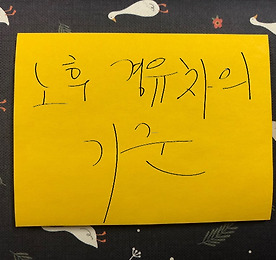 노후 경유차의
기준